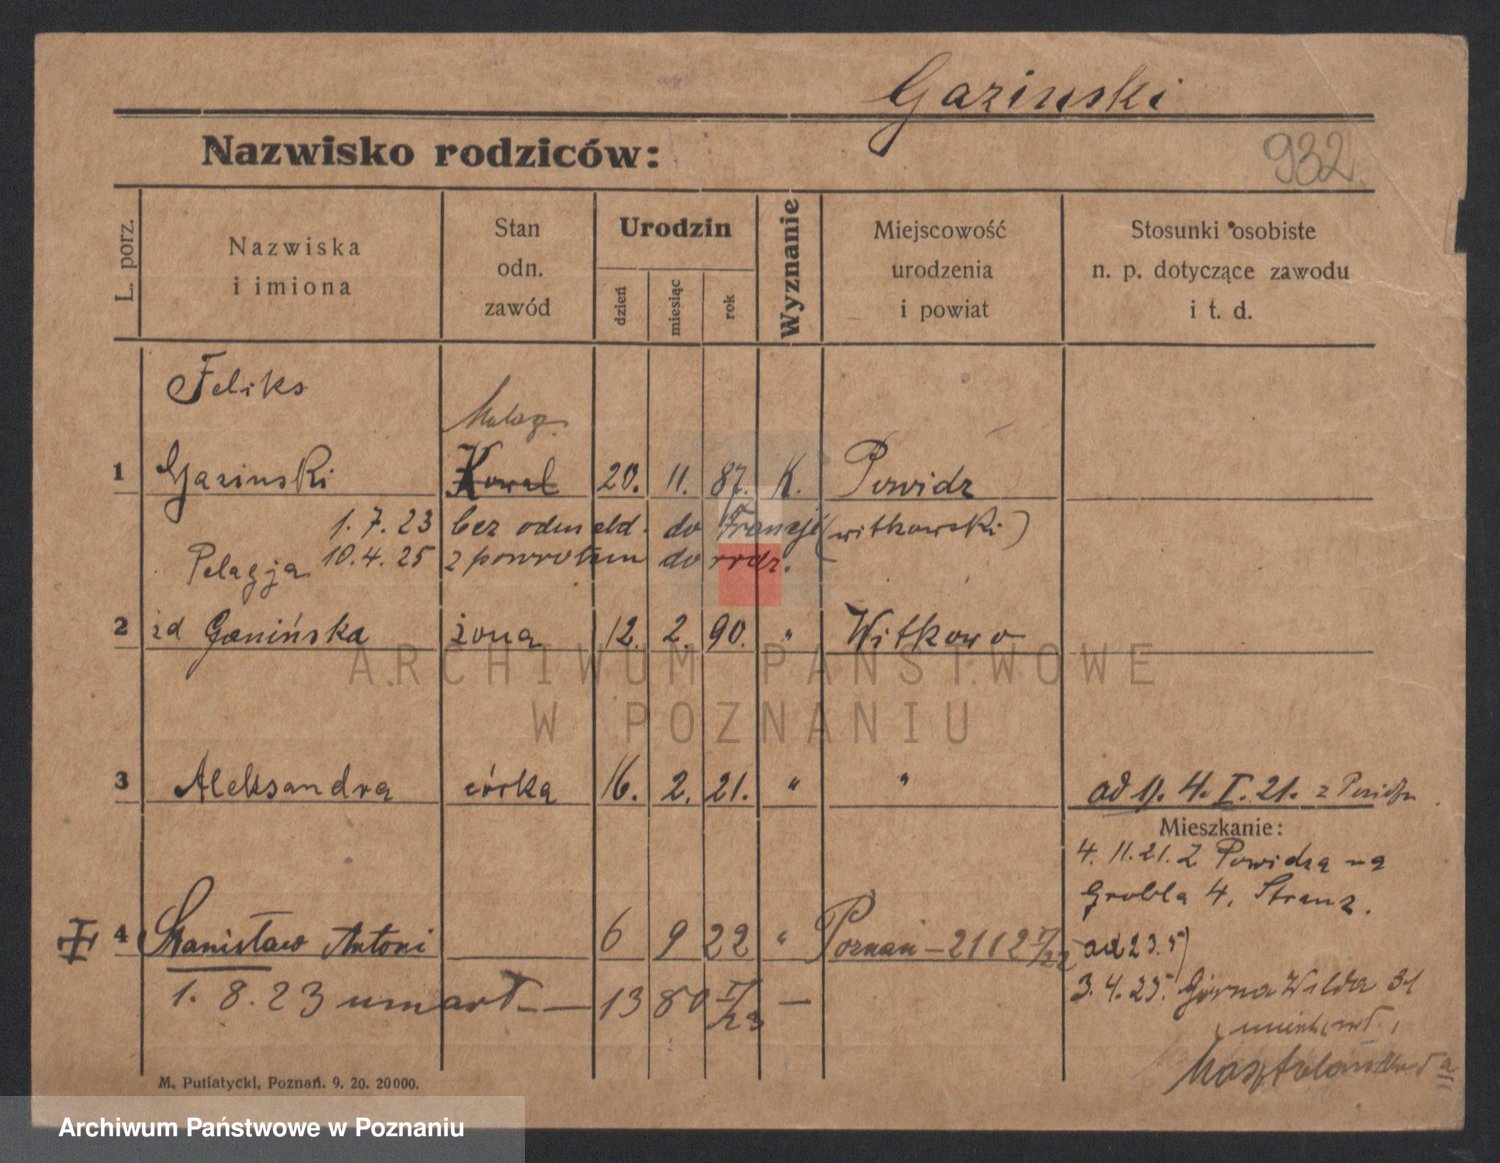 Gazinski
932
Nazwisko rodziców:
L. porz.
Nazwiska
i imiona
Stan
odn.
zawód
Urodzin
dzień
miesiąc
rok
Wyznanie
Miejscowość
urodzenia
i powiat
Stosunki osobiste
n. p. dotyczące zawodu
i t. d.
Feliks
1 Gazinski Kowal 20. 11. 87. K. Powidz
1. 7. 23 bez odmeld. do Francji (witkowski)
Pelagja 10. 4. 25 z powrotem do rodz.
2 zd Ganińska żona 12. 2. 90. " Witkowo
3 Aleksandra córka 16. 2. 21. " " od 1. 4. I. 21. z
Mieszkanie:
4. 11. 21. Z Powidza na
Grobla 4.
4 Stanisław Antoni 6 9 22 " Poznań - 2112 od 23.5
1. 8. 23 umarł - 13 80 -
3. 4. 25. Górna Wilda 31
M. Putiatycki, Poznań. 9. 20. 20000.
ARCHIWUM PAŃSTWOWE
W POZNANIU
Archiwum Państwowe w Poznaniu